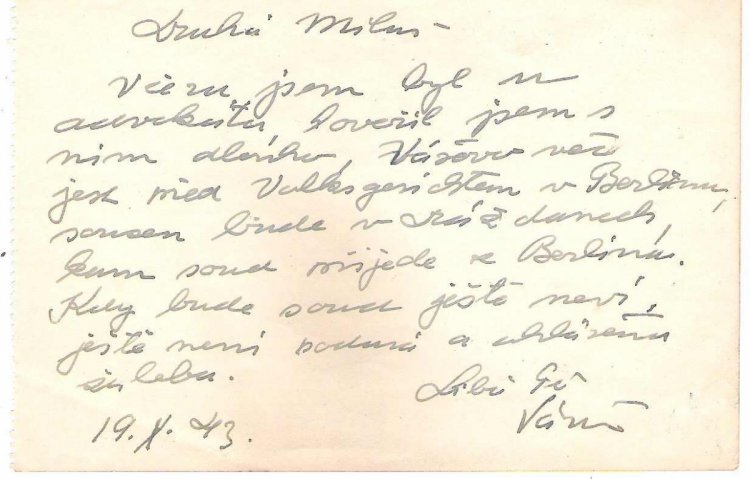 Drahá Miluš
Včera jsem byl u
advokáta, hovořil jsem s
ním dlouho, Vášova věc
jest před Volksgerichtem v Berlínu,
souzen bude v Drážďanech,
kam soud přijede z Berlína.
Kdy bude soud ještě neví,
ještě není podaná a
žaloba.
Líbá Tě
19. X. 43.